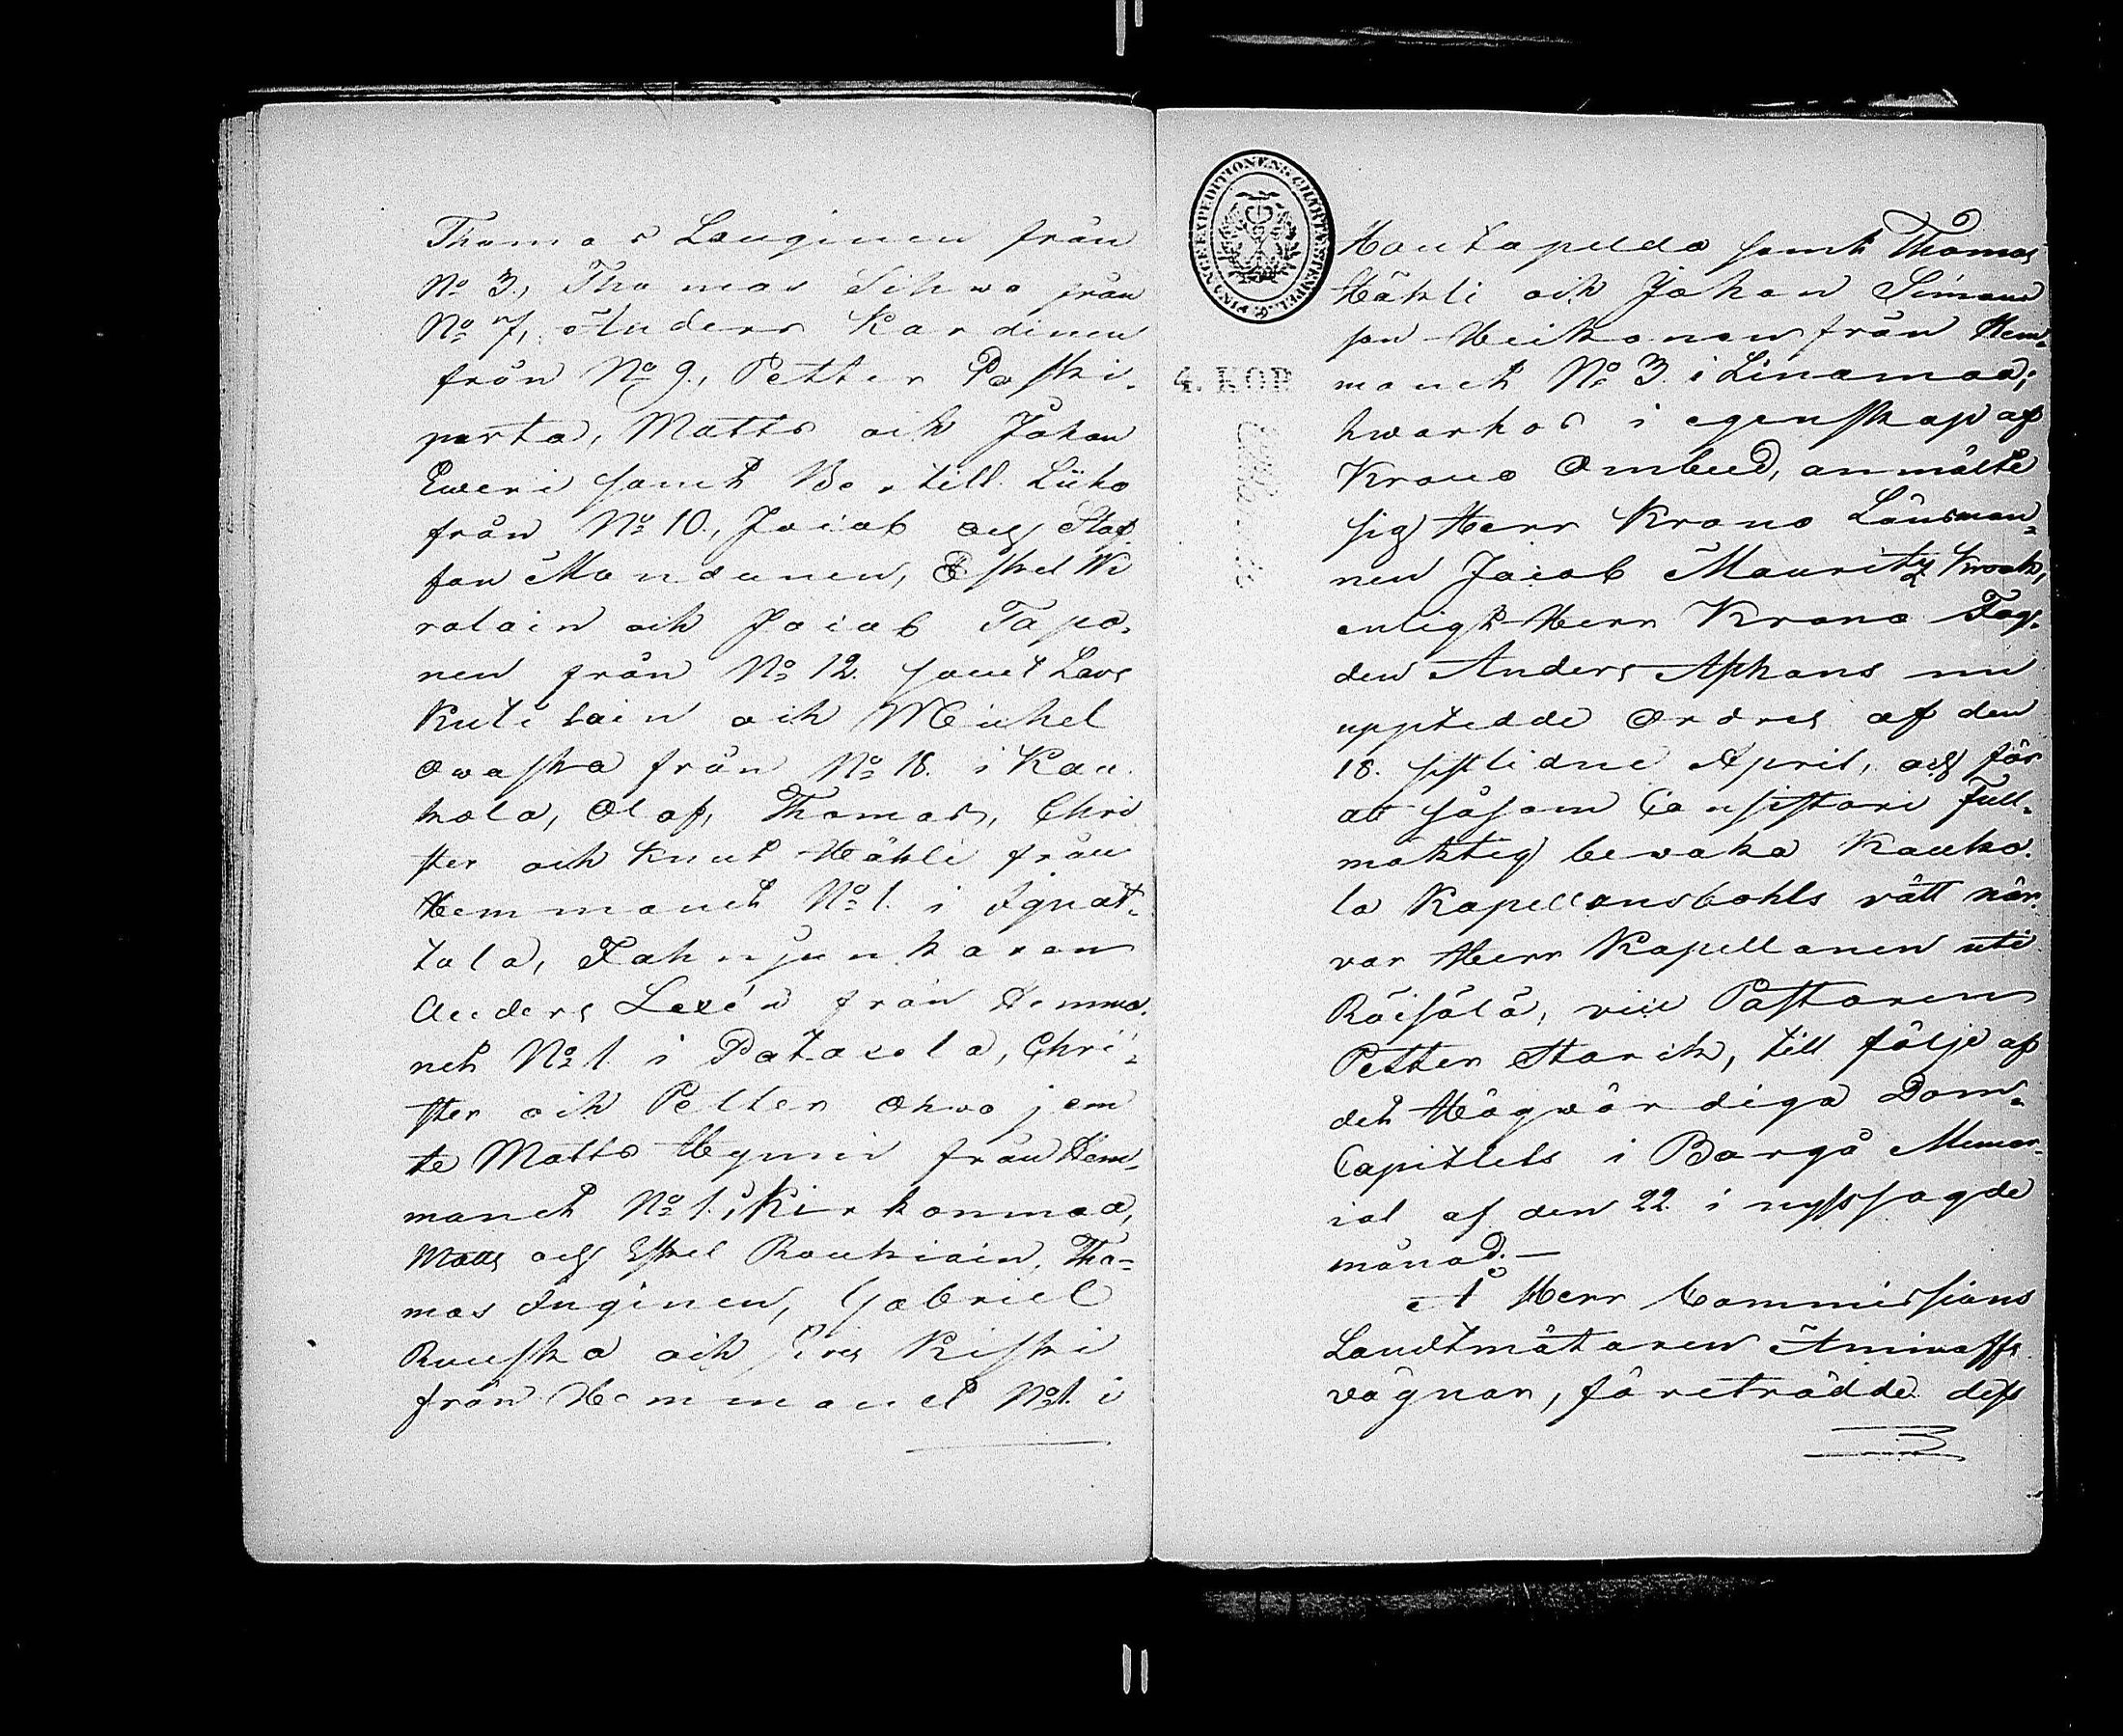 Thomas Lauginen från
No 3., Thomas Sihwo från
No 7, Anders Kardinen
från No 9., Petter Paski-
parta, Matts och Johan
Eweri samt Bertill Liiko
från No 10., Jacob och Staf
fan Mondunen, Eskel Ki
ralain och Jacob Tapo-
nen från No 12. samt Lars
Kutilain och Michel
Owaska från No 18. i Kau-
kola, Olof, Thomas, Chri
ster och Knut Häkli från
Hemmanet No 1. i Ignat-
tala, Fahnjunkaren
Anders Lexén från Hemma-
net No 1. i Patacola, Chri-
ster och Petter Ohwo jem
te Matts Hynni från Hem-
manet No 1. i Kirkonmaa,
Matts och Eskel Raukiain, Tho-
mas Inginen, Gabriel
Ruuska och Kiski
från Hemmanet No 1. i
FINANCE EXPEDITIONENS CHARTÆ STEMPEL
4. KOP
Hautapelda samt Thomas
Häkli och Johan Simons
son Heikonen från Hem-
manet No 3. i Linamaa;
hwarhos i egenskap af
Krono Ombud, anmälte
sig Herr Krono Länsman-
nen Jacob Mauritz Krook,
enligt Herr Krono Fog-
den Anders Aphans nu
upptedde Ordres af den
18. sistlidne April, och för
att såsom Consistorii Full-
mäktig bewaka Kauko-
la Kapellansbohls rätt när-
var Herr Kapellanen uti
Räisälä, vice Pastoren
Petter Starck, till följe af
det Högwördiga Dom-
Capitlets i Borgå Memor-
ial af den 22. i nyssagde
månad.—
Å Herr Commissions
Landtmätaren Äminoffs
vägnar, företrädde dess